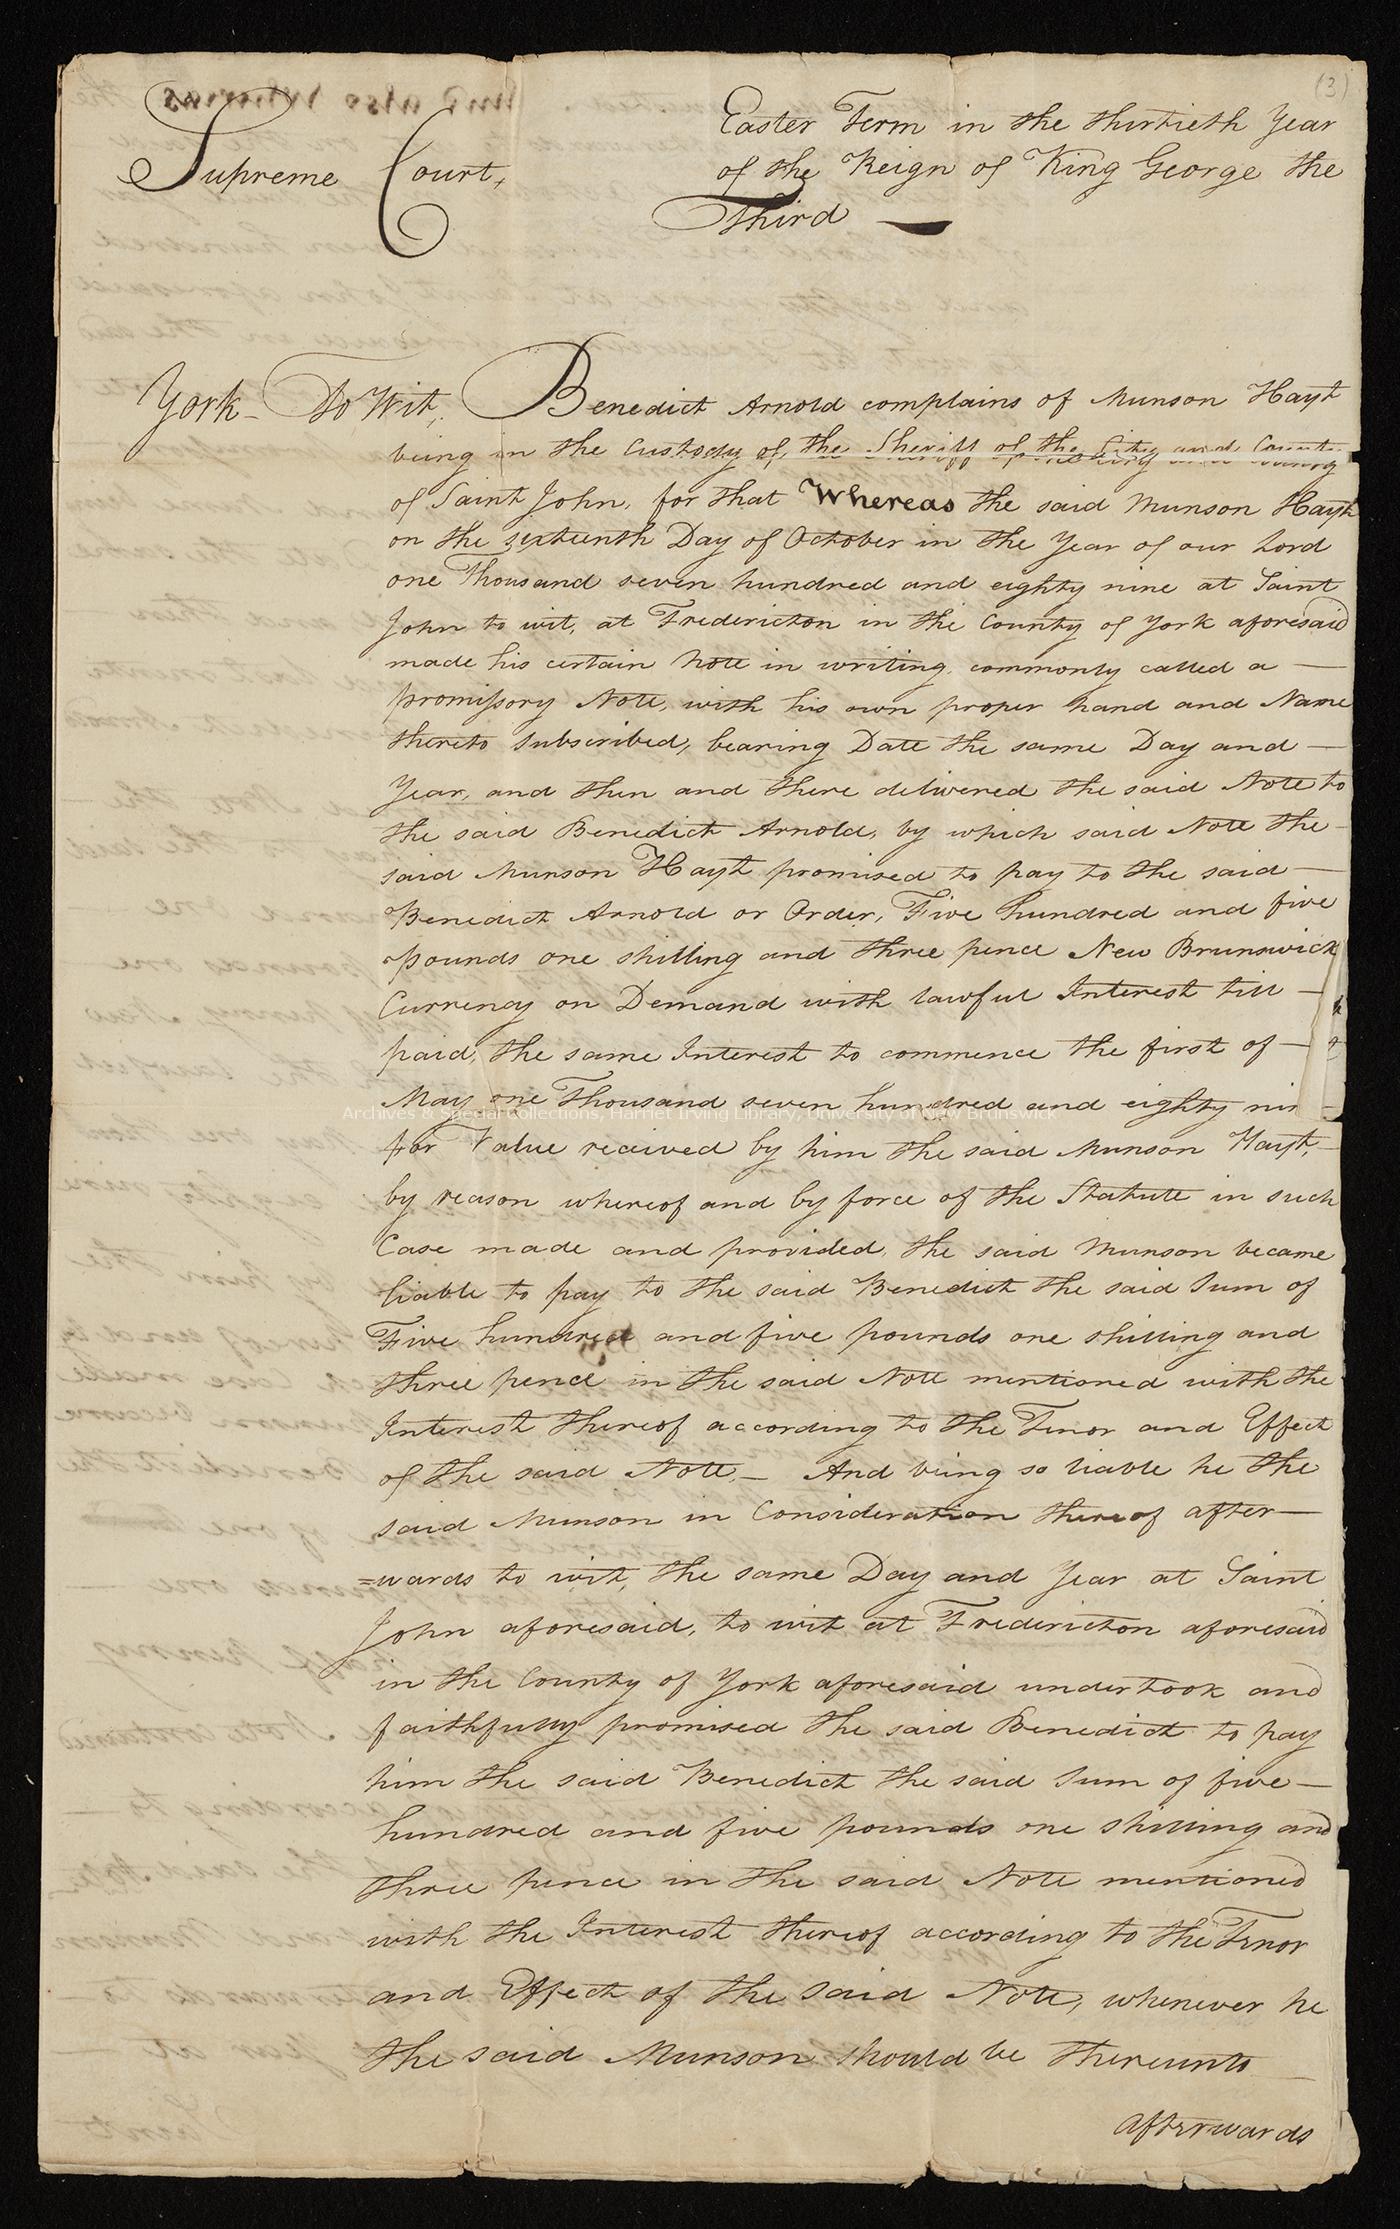 (3)
Supreme Court,
Easter Term in the thirtieth Year
of the Reign of King George the
Third
York To Wit, Benedict Arnold complains of Munson Hayt
being in the Custody of the Sheriff of the City and County
of Saint John, for that Whereas the said Munson Hayt
on the sixteenth Day of October in the Year of our Lord
one Thousand seven hundred and eighty nine at Saint
John to wit, at Fredericton in the County of York aforesaid
made his certain Note in writing commonly called a —
promissory Note, with his own proper hand and Name
thereto subscribed, bearing Date the same Day and —
Year, and then and there delivered the said Note to
the said Benedict Arnold, by which said Note the
said Munson Hayt promised to pay to the said —
Benedict Arnold or Order, Five hundred and five
pounds one shilling and three pence New Brunswick
Currency on Demand with lawful Interest till —
paid, the same Interest to commence the first of —
May one Thousand seven hundred and eighty
for Value received by him the said Munson Hayt, —
by reason whereof and by force of the Statute in such
Case made and provided, the said Munson became
liable to pay to the said Benedict the said Sum of
Five hundred and five pounds one shilling and
three pence in the said Note mentioned with the
Interest thereof according to the Tenor and Effect
of the said Note, — And being so liable he the
said Munson in Consideration thereof after—
=wards to wit, the same Day and Year at Saint
John aforesaid, to wit at Fredericton aforesaid
in the County of York aforesaid undertook and
faithfully promised the said Benedict to pay
him the said Benedict the said Sum of five —
hundred and five pounds one shilling and
three pence in the said Note mentioned
with the Interest thereof according to the Tenor
and Effect of the said Note, whenever he
the said Munson should be thereunto
afterwards
Archives & Special Collections, Harriet Irving Library, University of New Brunswick